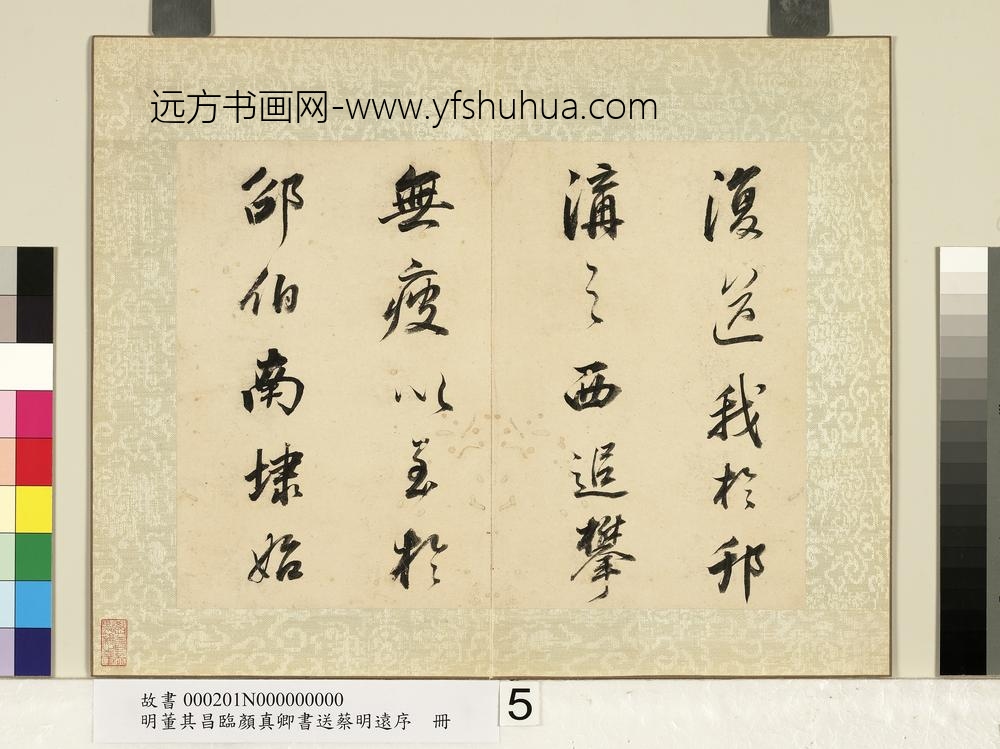 远方书画网-www.yfshuhua.com
復送我於邗
溝之西追攀
無疲以至於
邵伯南埭始
故書 000201N000000000
明董其昌臨顏真卿書送蔡明遠序 冊
5